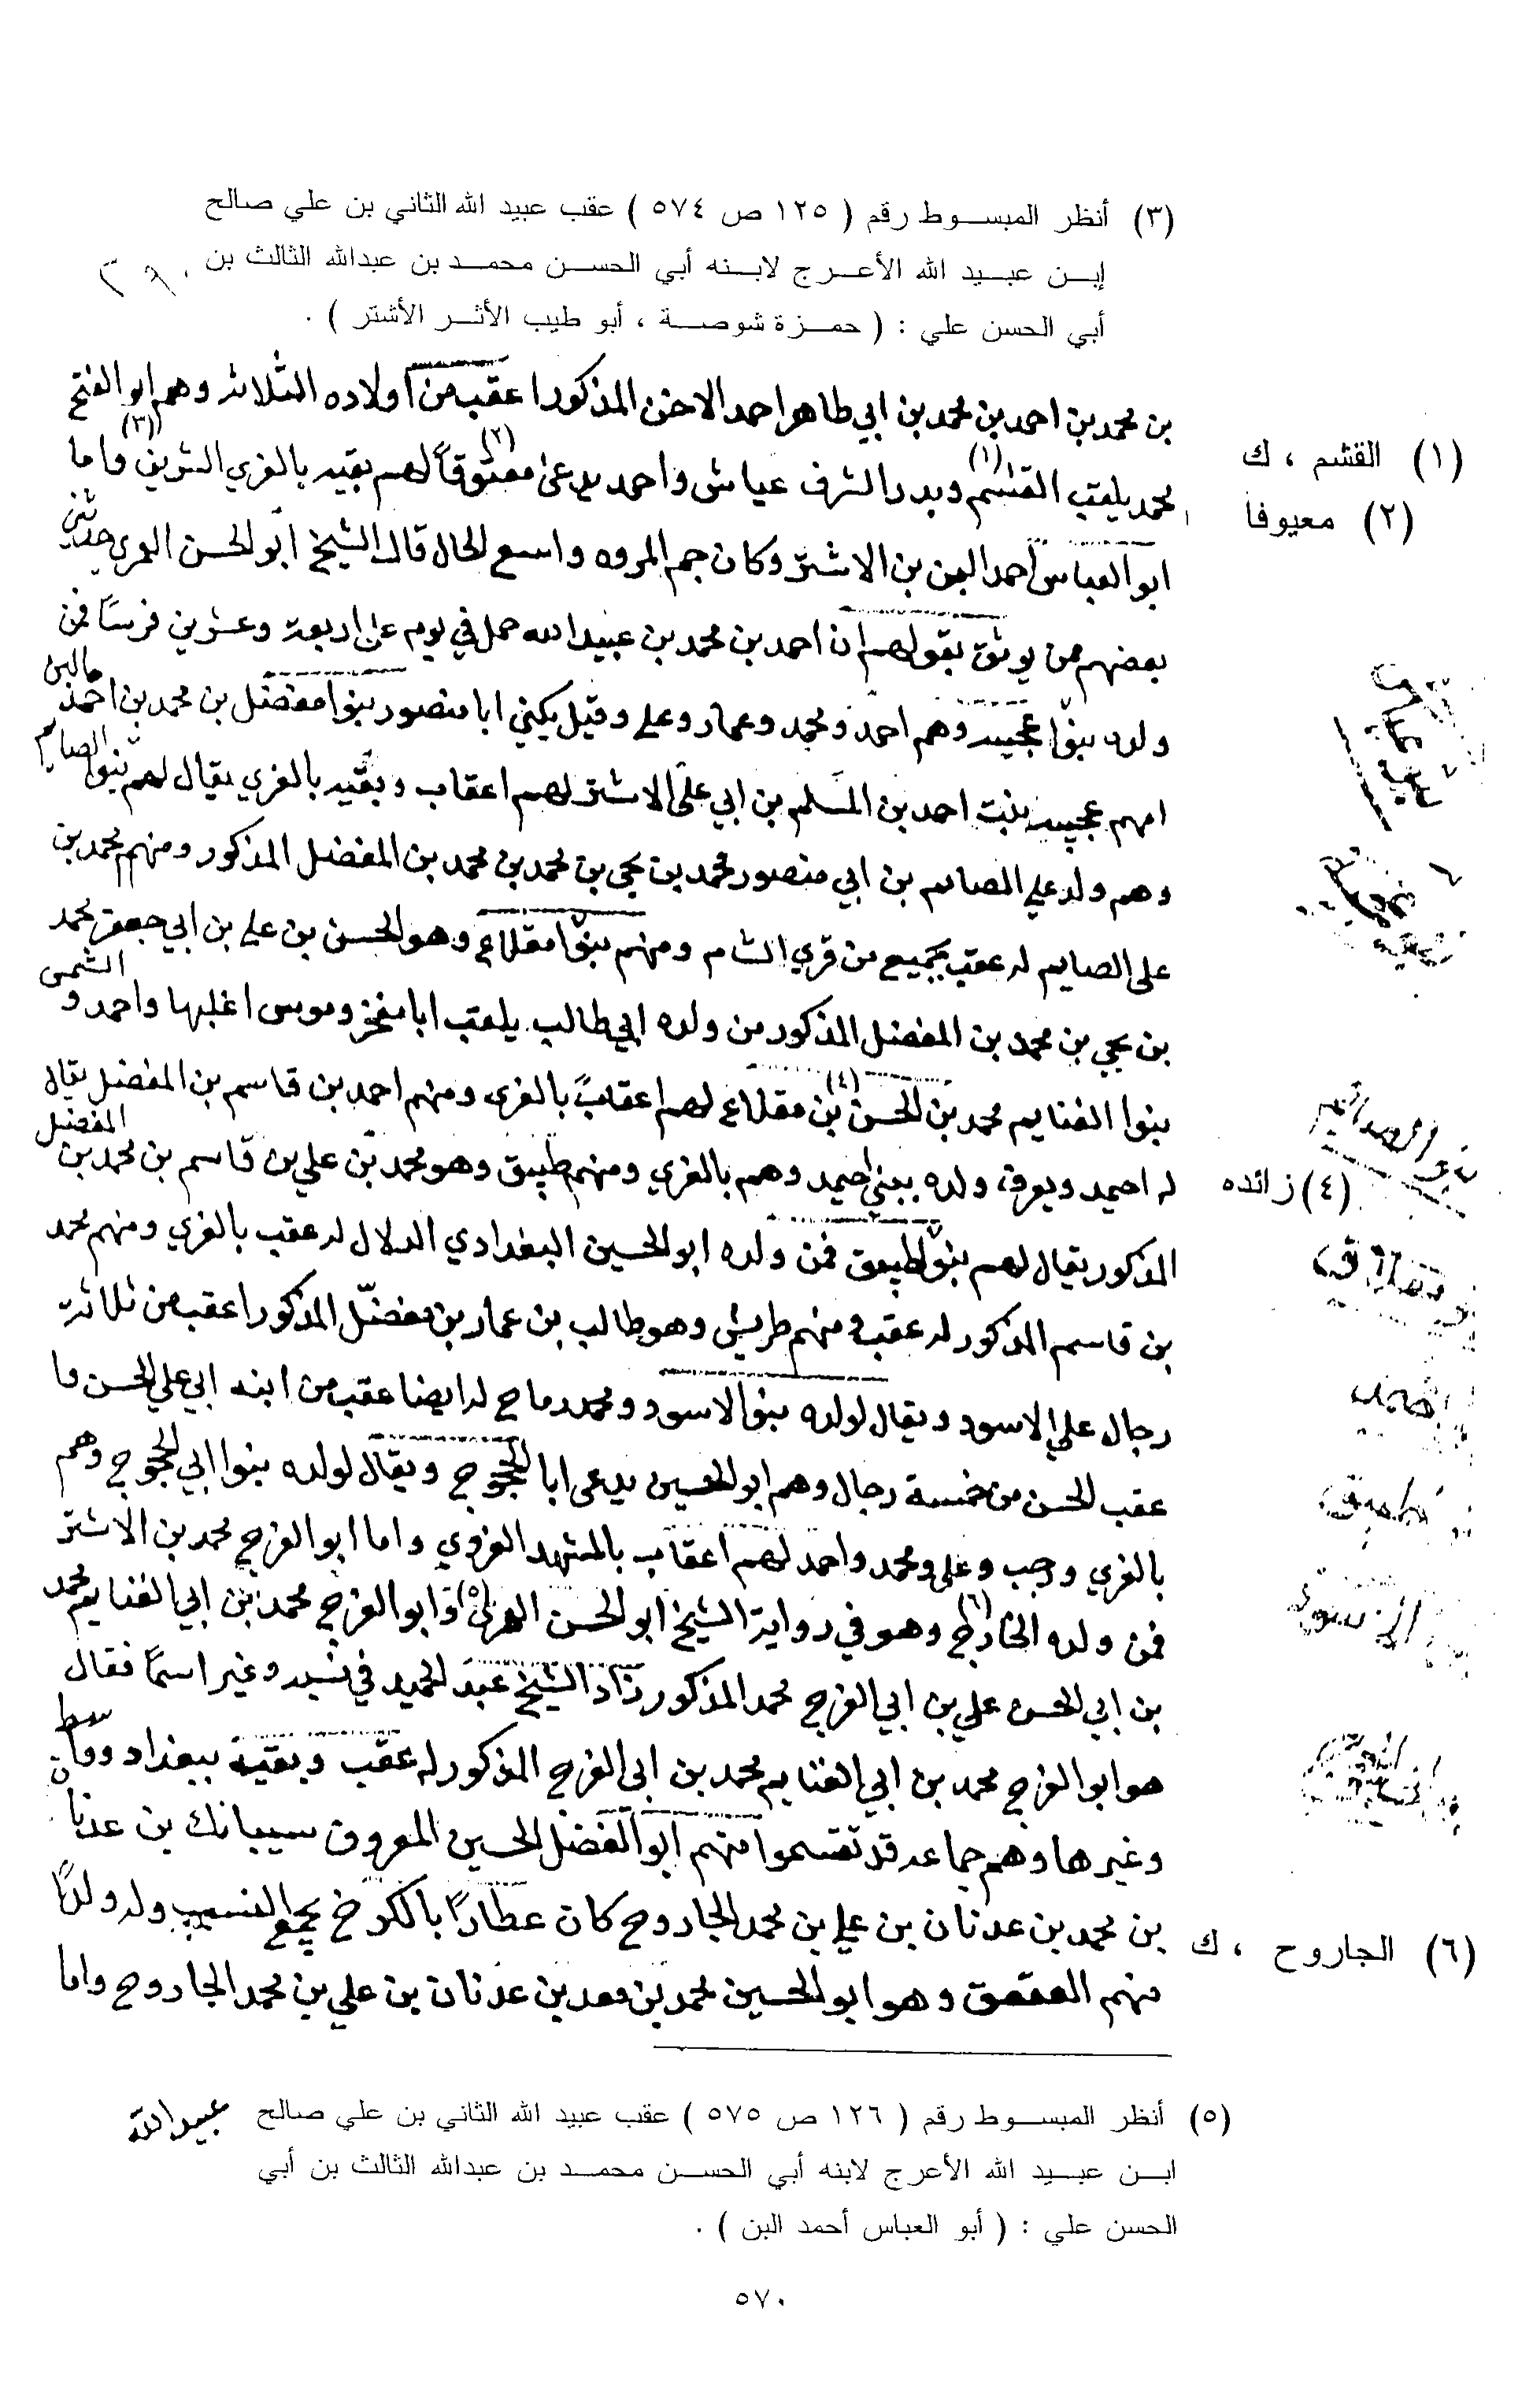 (٣) أنظر المبسوط رقم ( ١٢٥ ص ٥٧٤ ) عقب عبيد الله الثاني بن علي صالح
إبن عبيد الله الأعرج لابنه أبي الحسن محمد بن عبدالله الثالث بن
أبي الحسن علي : ( حمزة شوصة ، أبو طيب الأثر الأشتر ) .
بن محمد بن احمد بن محمد بن ابي طاهر احمد الاخن المذكور اعقب من اولاده الثلاثه وهم ابو الفتح
محمد يلقب القشم (١) وبدر الشرف عياش واحمد يدعى معتوقاً (٢) لهم بقيه بالغري الشريف (٣) واما
(١) القشم ، ك
(٢) معيوفا
ابو العباس احمد البن بن الاشتر وكان جم المروه واسع الحال قال الشيخ ابو الحسن العمري حدثني
بعضهم من يوثق بقولهم ان احمد بن محمد بن عبيد الله حمل في يوم على اربعة وعشرين فرسًا فمن
ولده بنوا عجيبه وهم احمد ومحمد وعمار وعلي وقيل يكنى ابا منصور بنوا مفضل بن محمد بن احمد البن
امهم عجيبه بنت احمد بن المسلم بن ابي علي الاشتر لهم اعقاب وبقيه بالغري يقال لهم بنوا الصايم
وهم ولد علي الصايم بن ابي منصور محمد بن يحيى بن محمد بن محمد بن المفضل المذكور ومنهم محمد بن
على الصايم له عقب بجميع من قرى الشام ومنهم بنوا مقلاع وهو الحسن بن علي بن ابي جعفر محمد
بن يحيى بن محمد بن المفضل المذكور من ولده ابي طالب يلقب ابا مفخر وموسى اغلبها واحمد و الشمس
بنوا الغنايم محمد بن الحسن (٤) بن مقلاع لهم اعقاب بالغرى ومنهم احمد بن قاسم بن المفضل يقال
له احيمد ويعرف ولده ببني احيمد وهم بالغري ومنهم طبيق وهو محمد بن علي بن قاسم بن محمد بن المفضل
بنو الصائم
(٤) زائده
المذكور يقال لهم بنوا طبيق فمن ولده ابو الحسين البغدادي الدلال له عقب بالغري ومنهم محمد
بن قاسم المذكور له عقب ومنهم طريش وهو طالب بن عمار بن مفضل المذكور اعقب من ثلاثة
رجال علي الاسود ويقال لولده بنوا الاسود ومحمد رماح له ايضا عقب من ابنه ابي علي الحسن ما
عقب الحسن من خمسة رجال وهم ابو الحسين يدعى ابا الججوج ويقال لولده بنوا ابي الججوج وهم
بالغري ورجب وعلي ومحمد واحمد لهم اعقاب بالمشهد الغروي واما ابو الفرج محمد بن الاشتر
فمن ولده الخارج (٦) وهو في رواية الشيخ ابو الحسن العمري (٥) وابو الفرج محمد بن ابي الغنايم محمد
بن ابي الحسن علي بن ابي الفرج محمد المذكور زاد الشيخ عبد الحميد في نسبه وغير اسمًا فقال
هو ابو الفرج محمد بن ابي الغنايم محمد بن ابى الفرج المذكور له عقب وبقية ببغداد وواسط
وغيرها وهم جماعه قد تقسموا منهم ابو الفضل الحسين المعروف سيبانك بن عدنان
بن محمد بن عدنان بن علي بن محمد الجاروح كان عطارًا بالكرخ يجمع النسب وله ولدًا
(٦) الجاروح ، ك
منهم العقعق وهو ابو الحسين محمد بن معد بن عدنان بن علي بن محمد الجاروح واما
(٥) أنظر المبسوط رقم ( ١٢٦ ص ٥٧٥ ) عقب عبيد الله الثاني بن علي صالح عبيد الله
ابن عبيد الله الأعرج لابنه أبي الحسن محمد بن عبدالله الثالث بن أبي
الحسن علي : ( أبو العباس أحمد البن ) .
٥٧٠